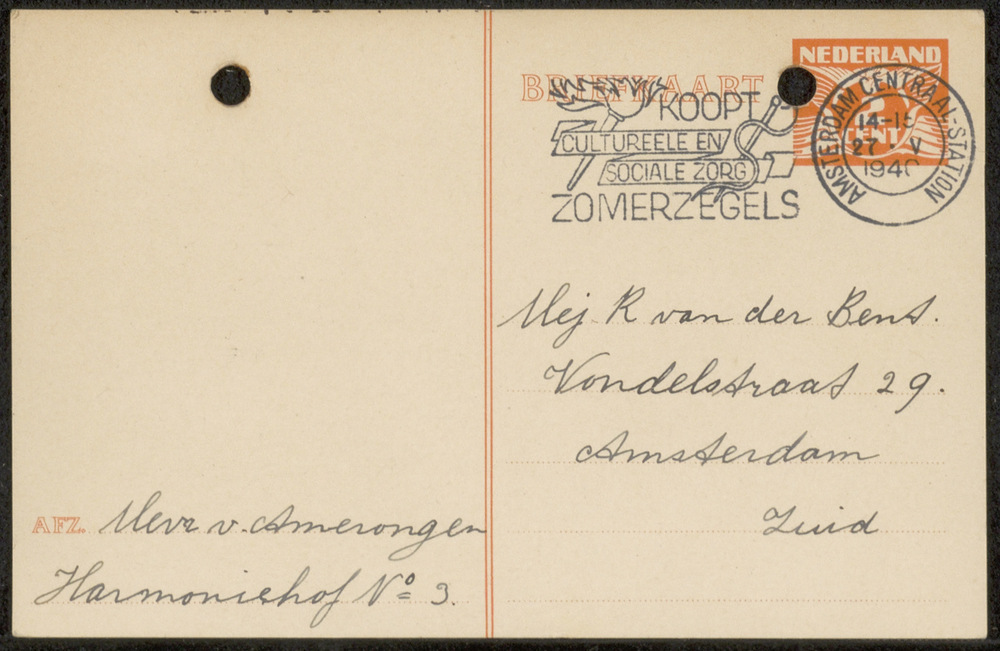 NEDERLAND
BRIEFKAART
CENT
AMSTERDAM CENTRAAL-STATION
14-15
27 · V
1940
KOOPT
CULTUREELE EN
SOCIALE ZORG
ZOMERZEGELS
Mej R van der Bent.
Vondelstraat 29.
Amsterdam
Zuid
AFZ. Mevr v. Amerongen
Harmoniehof No 3.